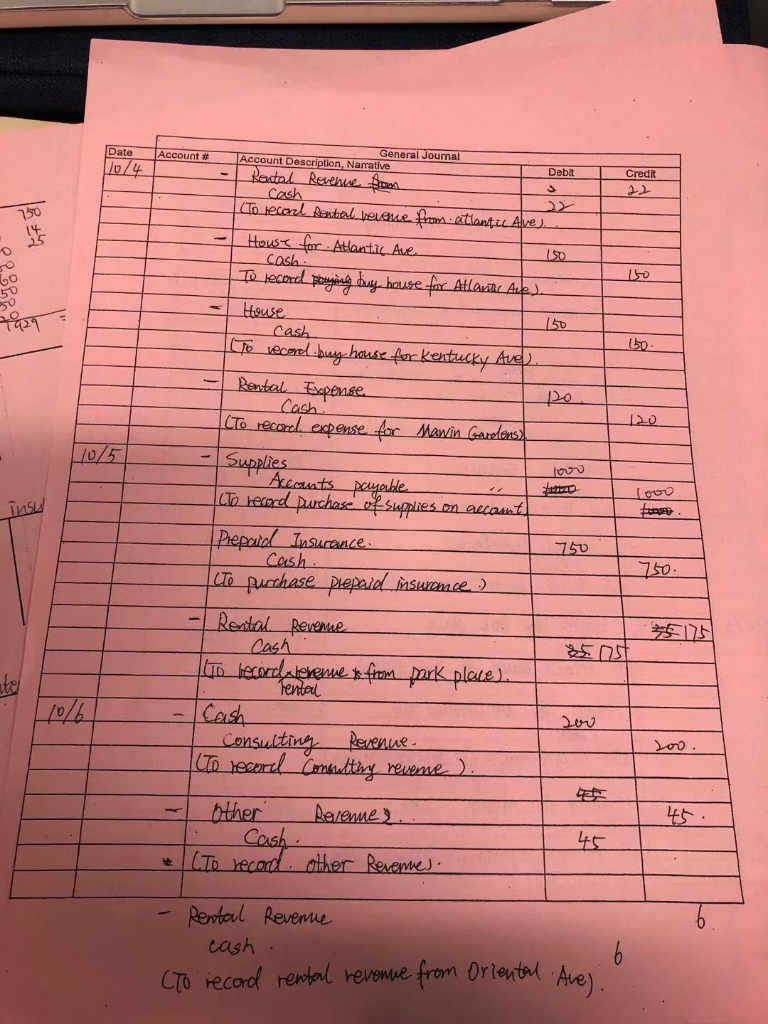 General Journal
Date Account # Account Description, Narrative Debit Credit
10/4 - Rental Revenue from 22
Cash 22
(To record Rental revenue from atlantic Ave).
- House for Atlantic Ave. 150
Cash. 150
To record paying buy house for Atlantic Ave).
- House 150
Cash 150.
(To record buy house for Kentucky Ave).
- Rental Expense 120.
Cash. 120
(To record expense for Marvin Gardens)
10/5 - Supplies 1000
Accounts payable 1000 1000
(To record purchase of supplies on account) 1000.
Prepaid Insurance. 750
Cash. 750.
(To purchase prepaid insurance.)
- Rental Revenue 35 175
Cash 35 175
(To record revenue from park place).
rental
10/6 - Cash 200
Consulting Revenue. 200.
(To record Consulting revenue).
45
- Other Revenue 45.
Cash. 45
(To record other Revenue).
- Rental Revenue 6
cash. 6
(To record rental revenue from Oriental Ave).
750
14
25
50
60
50
50
20
1929 =
Insu